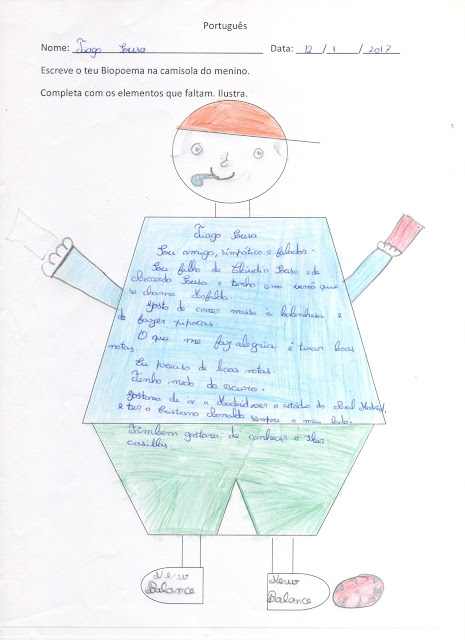 Português
Nome: Tiago Sousa Data: 12 / 1 / 2017
Escreve o teu Biopoema na camisola do menino.
Completa com os elementos que faltam. Ilustra.
Tiago Sousa
Sou amigo, simpático e falador.
Sou filho de Cláudia Sousa e de
Ricardo Sousa e tenho uma irmã que
se chama Mafalda.
Gosto de comer massa à bolonhesa e
de fazer pipocas.
O que me faz alegria é tirar boas
notas.
Eu preciso de boas notas
Tenho medo do escuro.
Gostava de ir a Madrid ver o estádio do Real Madrid,
e ter o Cristiano Ronaldo sempre a meu lado.
Também gostava de conhecer o Iker
Casillas
New
Balance
New
Balance